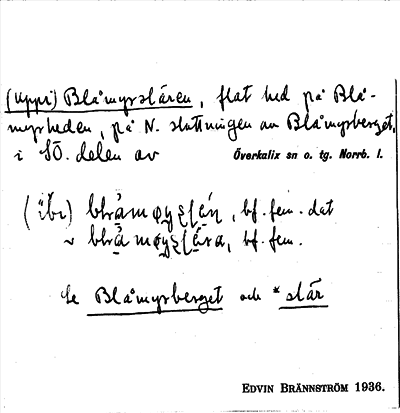 (uppi) Blåmyrslåren, flat hed på Blå-
myrheden, på N. sluttningen av Blåmyrberget,
i SÖ. delen av Överkalix sn o. tg. Norrb. l.
bf. fem. dat
bf. fem.
Se Blåmyrberget och *slår
EDVIN BRÄNNSTRÖM 1936.